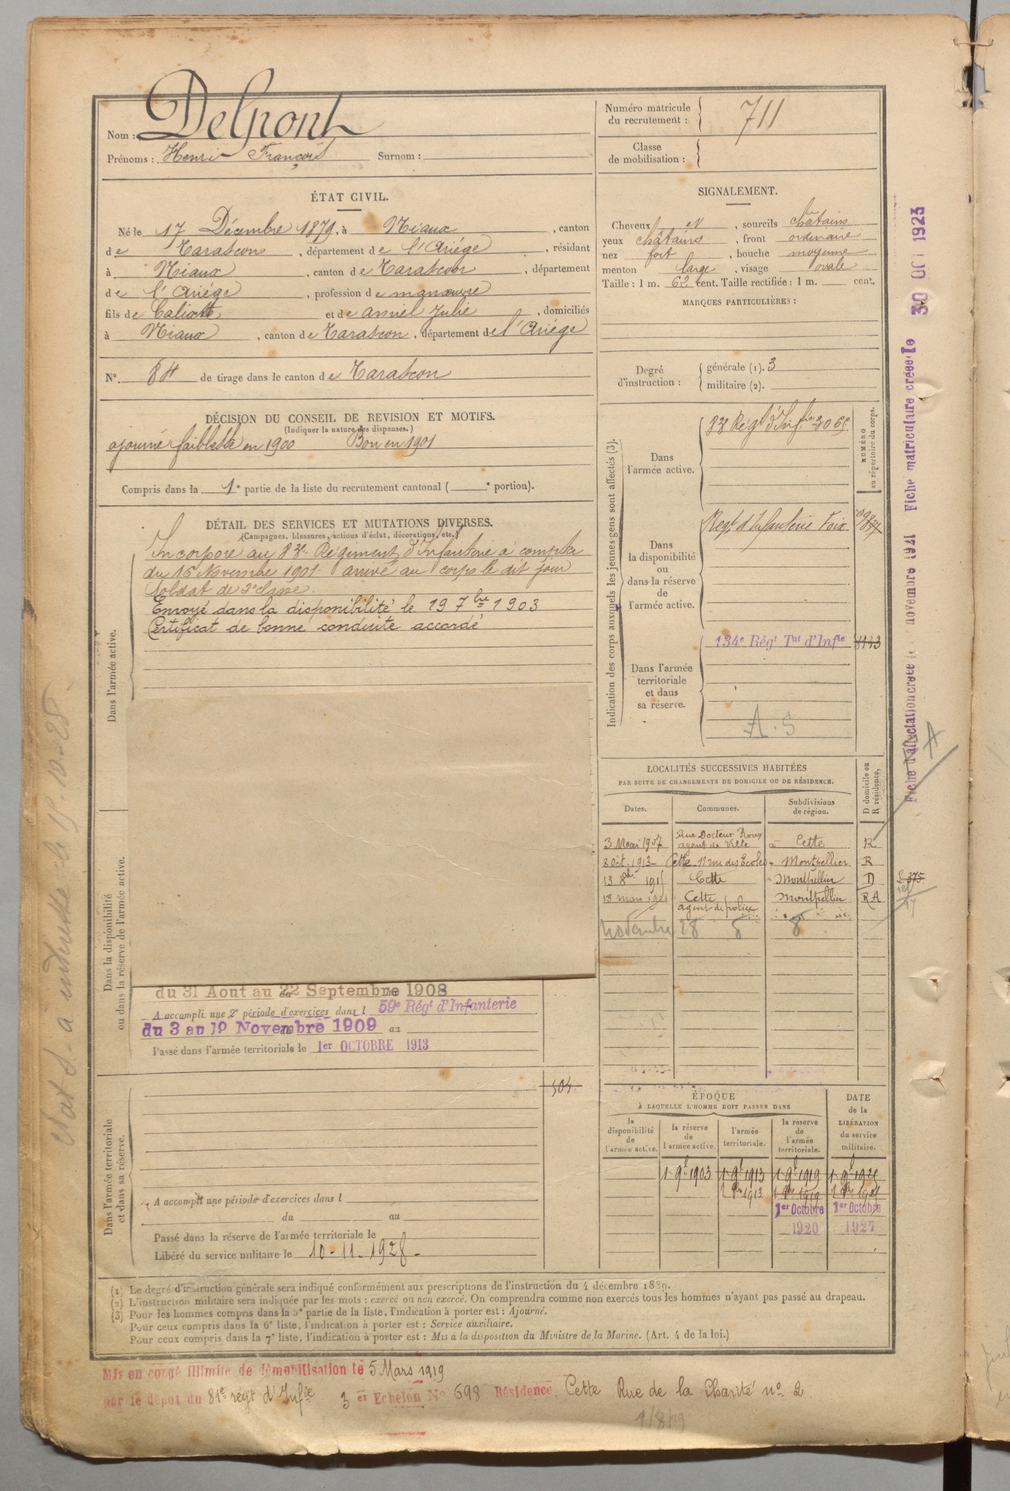 Nom : Delpont
Prénoms : Henri François Surnom :
Numéro matricule du recrutement : 711
Classe de mobilisation :
ÉTAT CIVIL.
Né le 17 Décembre 1879, à Niaux, canton
de Tarascon, département de l'Ariége, résidant
à Niaux, canton de Tarascon, département
de l'Ariége, profession de manœuvre
fils de Calixte et de Anniel Julie, domiciliés
à Niaux, canton de Tarascon, département de l'Ariége
N° 84 de tirage dans le canton de Tarascon
DÉCISION DU CONSEIL DE REVISION ET MOTIFS.
(Indiquer la nature des dispenses.)
ajourné faiblesse en 1900 Bon en 1901
Compris dans la 1e partie de la liste du recrutement cantonal ( e portion).
DÉTAIL DES SERVICES ET MUTATIONS DIVERSES.
(Campagnes, blessures, actions d'éclat, décorations, etc.)
Dans l'armée active.
Incorporé au 83e Régiment d'Infanterie à compter
du 16 Novembre 1901 arrivé au corps le dit jour
Soldat de 2e classe.
Envoyé dans la disponibilité le 19 7bre 1903
Certificat de bonne conduite accordé
Dans la disponibilité
ou dans la réserve de l'armée active.
du 31 Aout au 22 Septembre 1908
A accompli une 2e période d'exercices dans l 59e Régt d'Infanterie
du 3 au 19 Novembre 1909 au
Passé dans l'armée territoriale le 1er OCTOBRE 1913
504
Dans l'armée territoriale
et dans sa réserve.
A accompli une période d'exercices dans l
du au
Passé dans la réserve de l'armée territoriale le
Libéré du service militaire le 10-11-1928
SIGNALEMENT.
Cheveux et, sourcils châtains
yeux châtains, front ordinaire
nez fort, bouche moyenne
menton large, visage ovale
Taille : 1 m. 62 cent. Taille rectifiée : 1 m. cent.
MARQUES PARTICULIÈRES :
Degré d'instruction : générale (1). 3
militaire (2).
Indication des corps auxquels les jeunes gens sont affectés (3).
NUMÉRO au répertoire du corps.
Dans l'armée active.
83e Régt d'Infie
Dans la disponibilité ou dans la réserve de l'armée active.
Régt d'Infanterie Foix
Dans l'armée territoriale et dans sa réserve.
134e Régt Tal d'Infie
A.S
LOCALITÉS SUCCESSIVES HABITÉES
PAR SUITE DE CHANGEMENTS DE DOMICILE OU DE RÉSIDENCE.
Dates. Communes. Subdivisions de région. D domicile ou R résidence.
3 Mai 1907 Rue Docteur Roux agent de Ville à Cette R
8 oct. 1913 Cette 11 rue des Ecoles Montpellier R
Cette Montpellier D
18 mars 1921 Cette agent de police Montpellier RA
Novembre 28
ÉPOQUE
À LAQUELLE L'HOMME DOIT PASSER DANS
DATE de la LIBÉRATION du service militaire.
la disponibilité de l'armée active. la réserve de l'armée active. l'armée territoriale. la réserve de l'armée territoriale.
1er Octobre 1920
1er Octobre 1927
Fiche d'affectation créée le novembre 1921 Fiche matriculaire créée le 30 OCT 1923
(1) Le degré d'instruction générale sera indiqué conformément aux prescriptions de l'instruction du 4 décembre 1889.
(2) L'instruction militaire sera indiquée par les mots : exercé ou non exercé. On comprendra comme non exercés tous les hommes n'ayant pas passé au drapeau.
(3) Pour les hommes compris dans la 5e partie de la liste, l'indication à porter est : Ajourné.
Pour ceux compris dans la 6e liste, l'indication à porter est : Service auxiliaire.
Pour ceux compris dans la 7e liste, l'indication à porter est : Mis à la disposition du Ministre de la Marine. (Art. 4 de la loi.)
Mis en congé illimité de démobilisation le 5 Mars 1919
par le dépôt du 81e régt d'Infie 3 er Echelon N° 698 Résidence Cette Rue de la Charité no 2